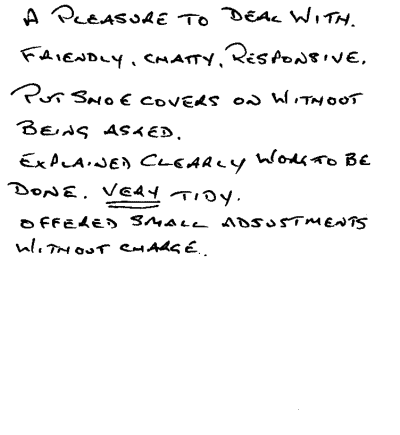 A PLEASURE TO DEAL WITH.
FRIENDLY, CHATTY, RESPONSIVE.
PUT SHOE COVERS ON WITHOUT
BEING ASKED.
EXPLAINED CLEARLY WORK TO BE
DONE. VERY TIDY.
OFFERED SMALL ADJUSTMENTS
WITHOUT CHARGE.